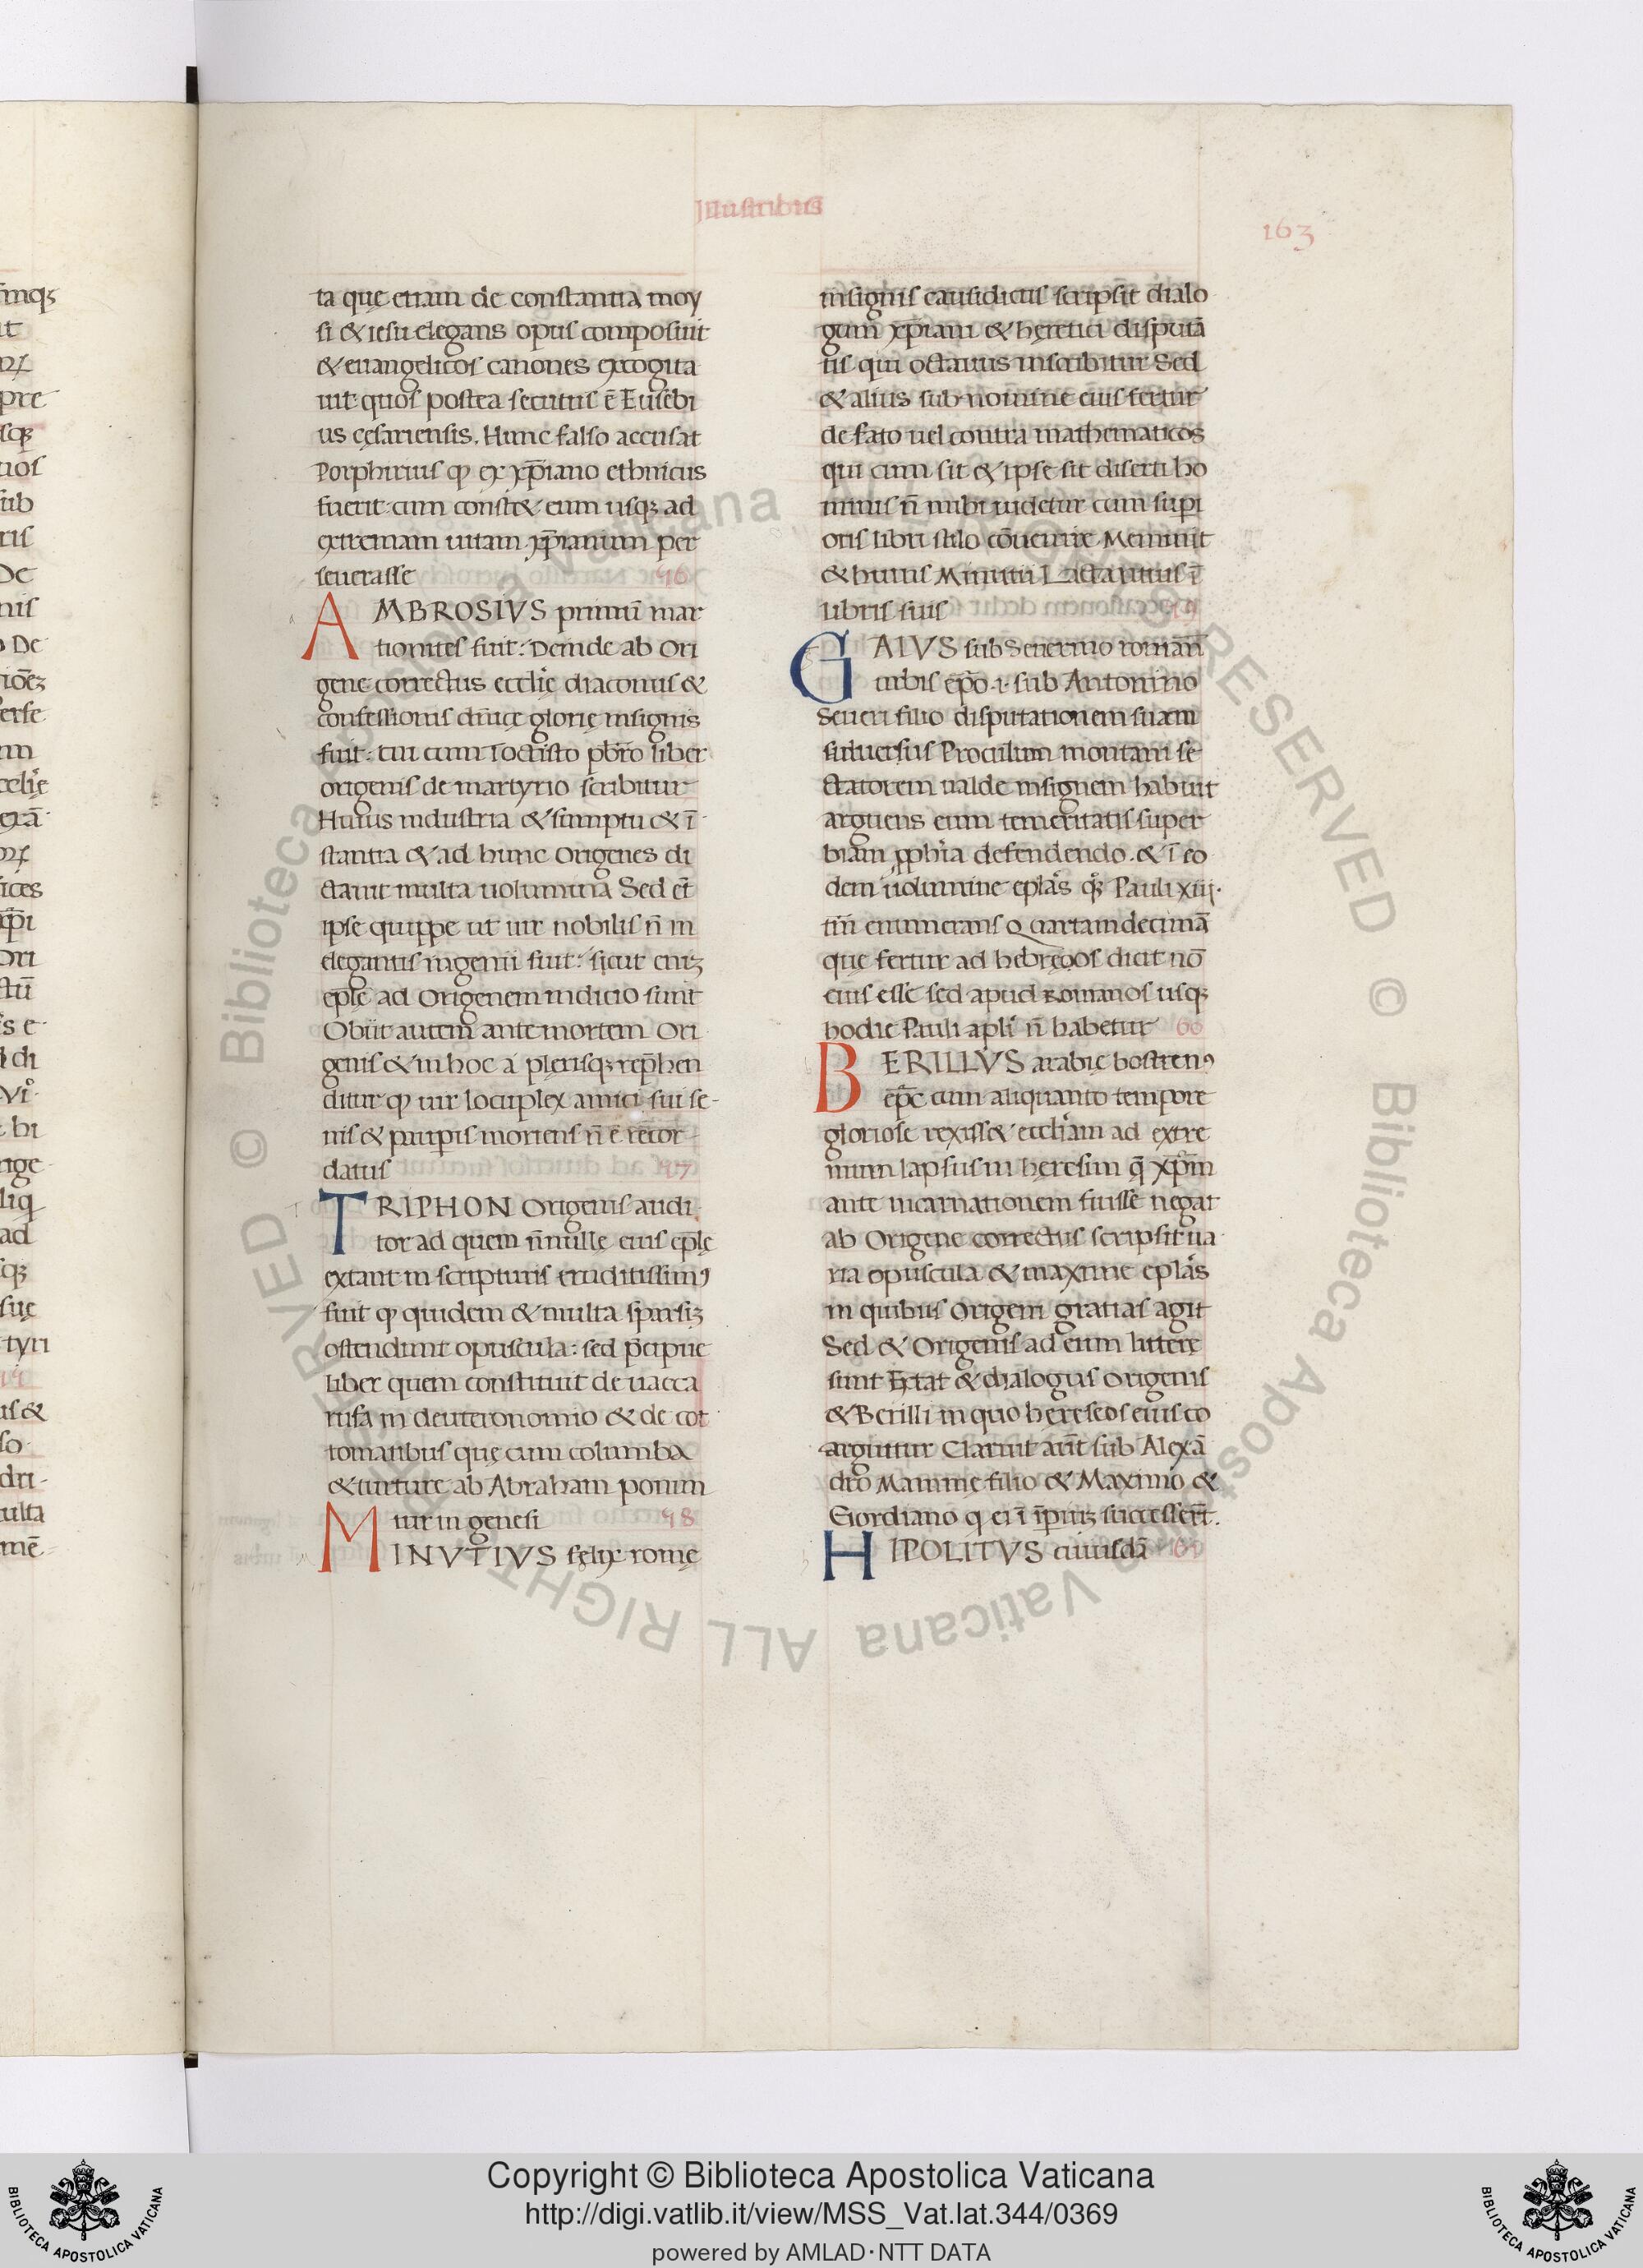 Illustribus
163
ta quę etiam de constantia moy
si & iesu elegans opus composuit
& euangelicos canones excogita
uit quos postea secutus ē Eusebi
us cęsariensis. Hunc falso accusat
Porphirius ꝙ ex xp̄iano ethnicus
fuerit: cum const& eum usqꝫ ad
extremam uitam xp̄ianum per
seuerasse 56
AMBROSIVS primū mar
tionites fuit: Deinde ab Ori
gene correctus eccl'ię diaconus &
confessionis dn̄icę glorię insignis
fuit: cui cum Toctisto pb̄ro liber
origenis de martyrio scribitur
Huius industria & sumptu & ī
stantia & ad hunc Origenes di
ctauit multa uolumina Sed et̄
ipse quippe ut uir nobilis n̄ in
elegantis ingenii fuit: sicut eniꝫ
ep̄lę ad Origenem indicio sunt
Obiit autem ante mortem Ori
genis & in hoc a plerisqꝫ rep̄hen
ditur ꝙ uir locuplex amici sui se
nis & paupis moriens n̄ ē recor
datus 57
TRIPHON Origenis audi
tor ad quem n̄nullę eius ep̄lę
extant in scripturis eruditissimꝰ
fuit ꝙ quidem & multa sparsiꝫ
ostendunt opuscula: sed p̄cipue
liber quem constituit de uacca
rufa in deuteronomio & de cot
tomatibus quę cum columba
& turture ab Abraham ponun
tur in genesi 58
MINVTIVS fęlix romę
insignis causidicus scripsit dialo
gum xp̄iani & heretici disputā
tis qui octauus inscribitur Sed
& alius sub nomine eius fertur
de fato uel contra mathematicos
qui cum sit & ipse sit diserti ho
minis n̄ mihi uidetur cum supi
oris libri stilo cōuenire Meminit
& huius Minutii Lactantius ī
libris suis
GAIVS sub Seuerino roman̄
urbis ep̄o .i. sub Antonino
Seueri filio disputationem suam
aduersus Proculum montani se
ctatorem ualde insignem habuit
arguens eum temeritatis super
biam p̱ph'ia defendendo. & ī eo
dem uolumine epl'as qꝫ Pauli xiij.
tm̄ enumerans Quartamdecimā
quę fertur ad hebręos dicit nō
eius esse sed apud Romanos usqꝫ
hodie Pauli apl'i n̄ habetur 60
BERILLVS arabię bostrenꝰ
ep̄c cum aliquanto tempore
gloriose rexiss& eccl'iam ad extre
mum lapsus in heresim q̄ xp̄m
ante incarnationem fuisse negat
ab Origene correctus scripsit ua
ria opuscula & maxime epl'as
in quibus Origeni gratias agit
Sed & Origenis ad eum litterę
sunt Extat & dialogus Origenis
& Berilli in quo hereseos eius co
arguitur Claruit aūt sub Alexā
dro Mammę filio & Maximo &
Gordiano q ei ī īpriꝫ successer̄t.
HIPOLITVS cuiusdā 61
Copyright © Biblioteca Apostolica Vaticana
http://digi.vatlib.it/view/MSS_Vat.lat.344/0369
powered by AMLAD·NTT DATA
BIBLIOTECA APOSTOLICA VATICANA
BIBLIOTECA APOSTOLICA VATICANA